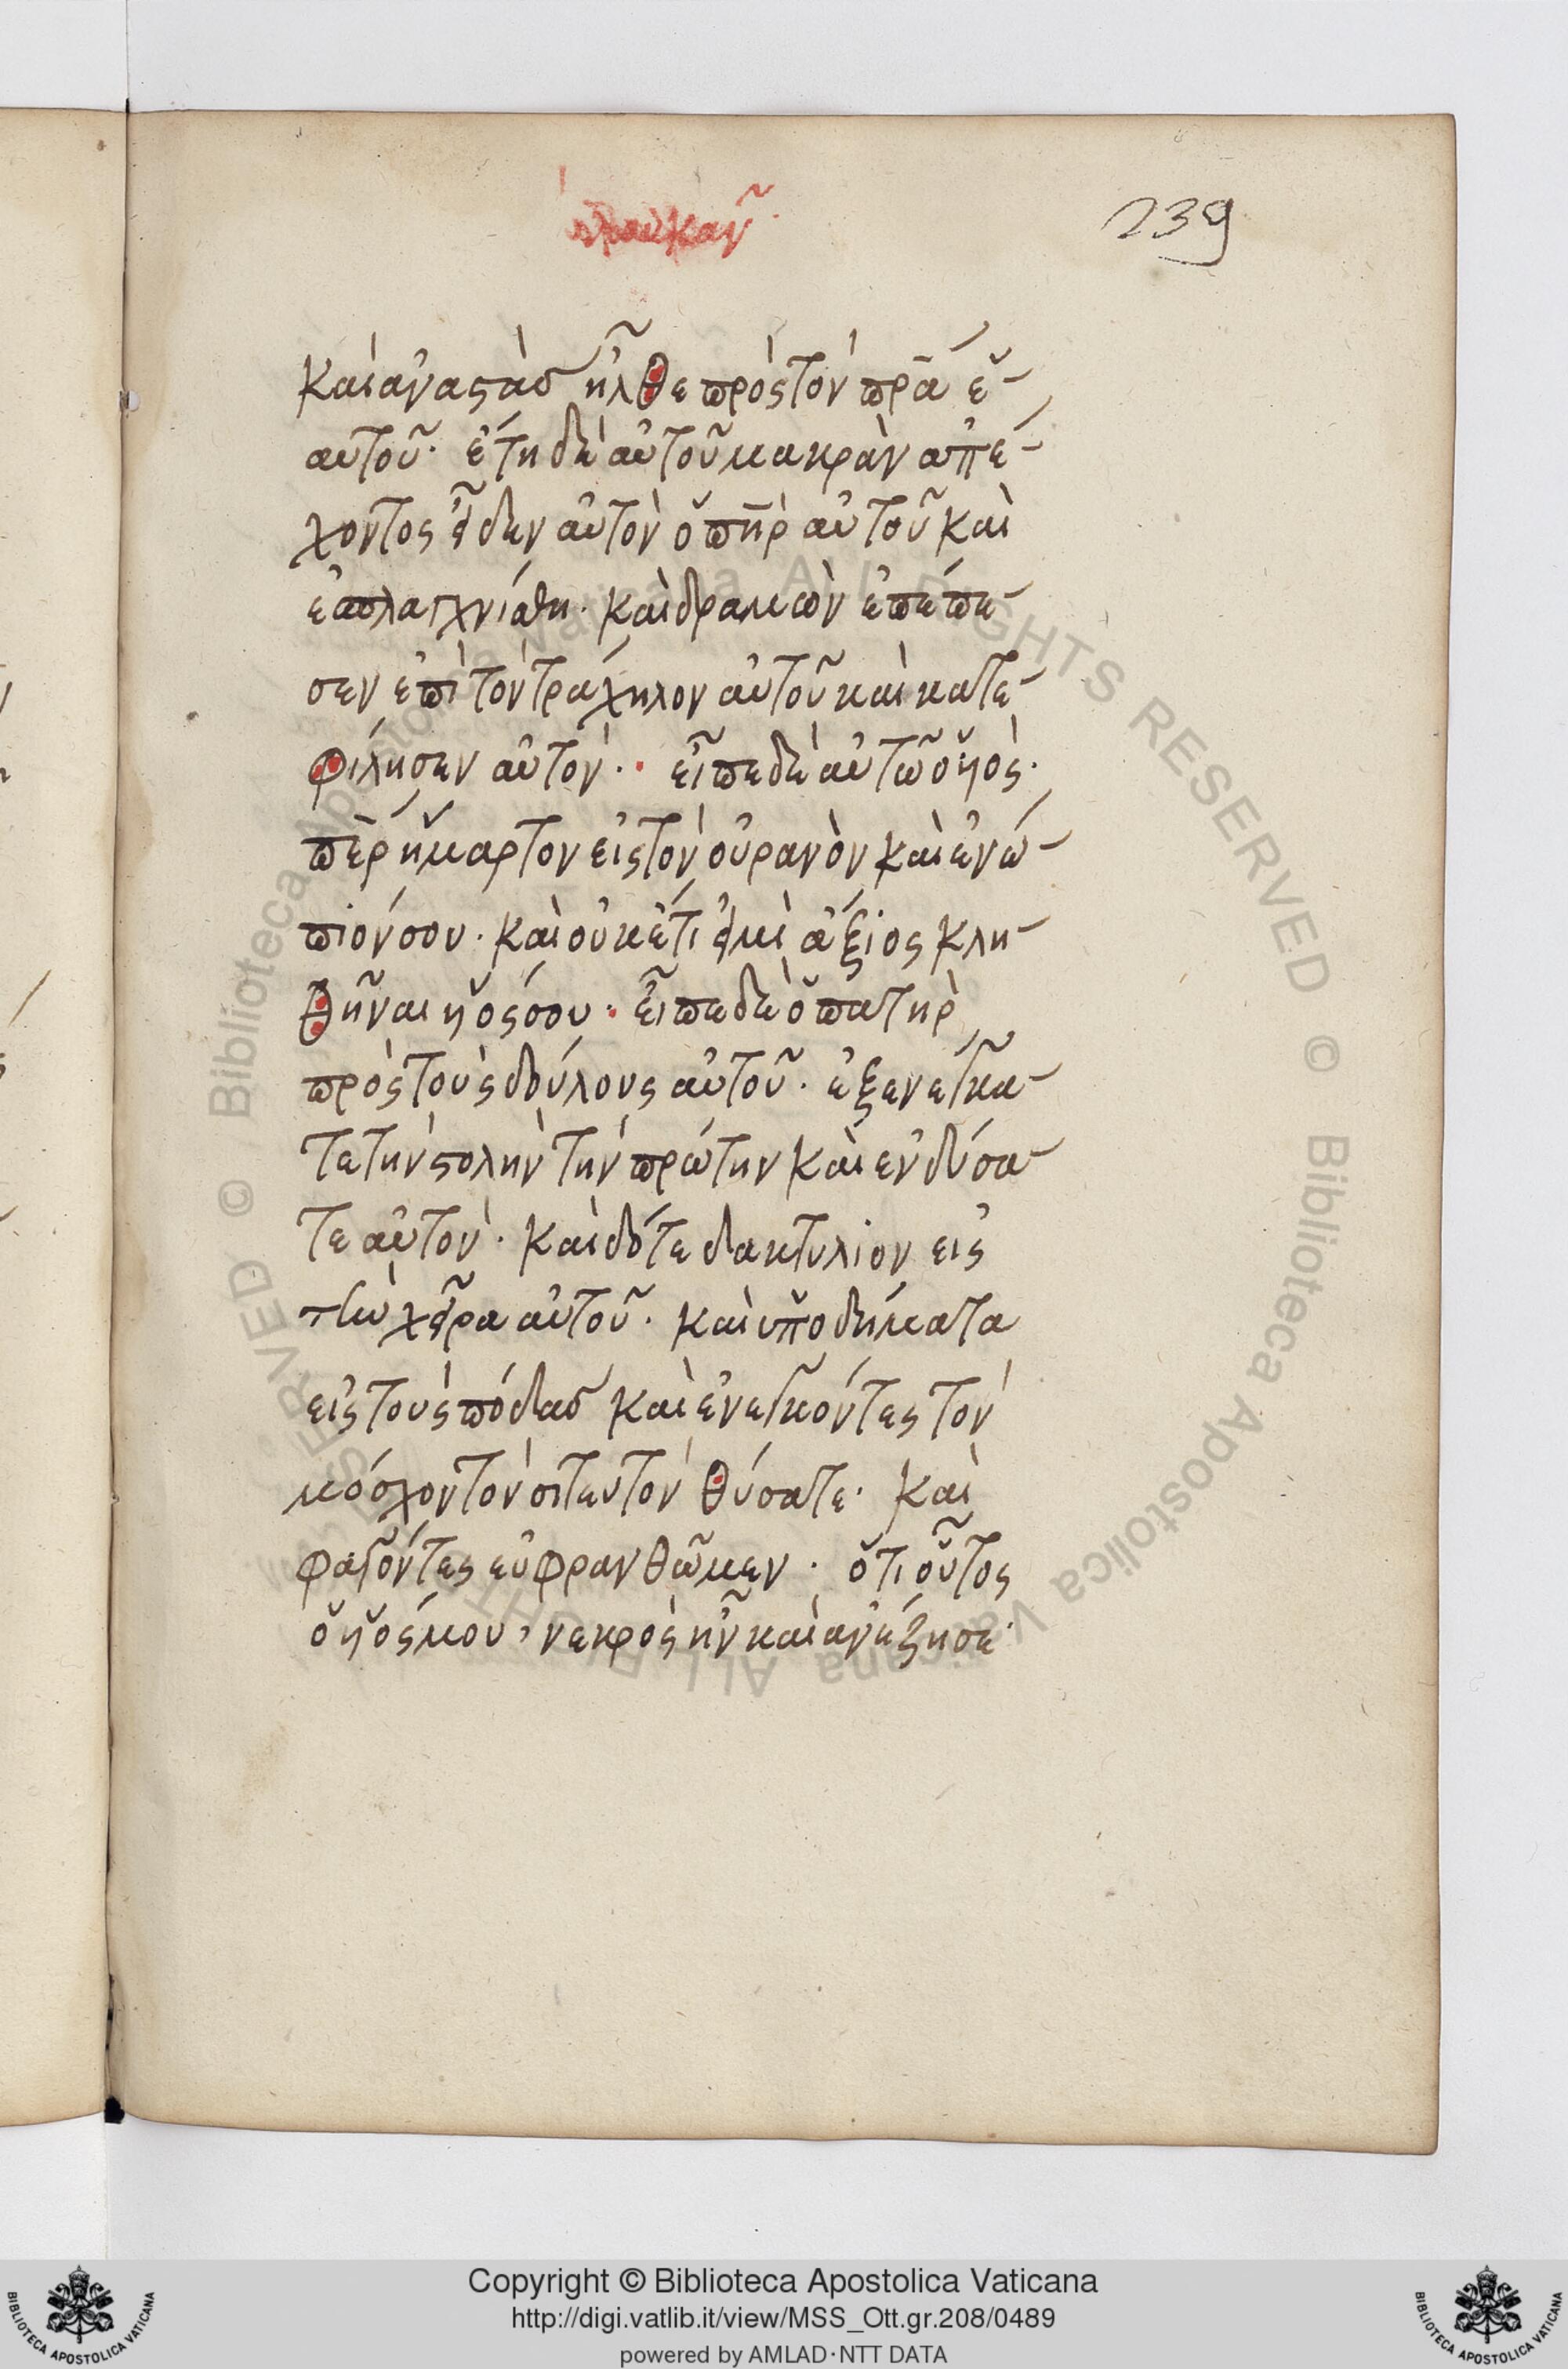 239
καὶ ἀναστὰς ἦλθε πρὸς τὸν πρ̄α ἑ-
αυτοῦ· ἔτη δὲ αὐτοῦ μακρὰν ἀπέ-
χοντος εἶδεν αὐτὸν ὁ πη̄ρ αὐτοῦ καὶ
ἐσπλαγχνίσθη· καὶ δραμὼν ἐπέπε-
σεν ἐπὶ τὸν τράχηλον αὐτοῦ καὶ κατε-
φίλησεν αὐτόν· εἶπε δὲ αὐτῶ ὁ ὑὸς·
πὲρ ἥμαρτον εἰς τὸν οὐρανὸν καὶ ἐνώ-
πιόν σου· καὶ οὐκέτι εἰμὶ ἄξιος κλη-
θῆναι ὑός σου· εἶπε δὲ ὁ πατὴρ
πρὸς τοὺς δούλους αὐτοῦ· ἐξενέγκα-
τε τὴν στολὴν τὴν πρώτην καὶ ἐνδύσα-
τε αὐτὸν· καὶ δότε δακτυλιον εἰς
τὴν χεῖρα αὐτοῦ· καὶ ὑποδήματα
εἰς τοὺς πόδας καὶ ἐνεγκόντες τὸν
μόσχον τὸν σιτευτὸν θύσατε· καὶ
φαγόντες εὐφρανθῶμεν· ὅτι οὗτος
ὁ ὑός μου, νεκρὸς ἦν καὶ ἀνέζησε·
Copyright © Biblioteca Apostolica Vaticana
http://digi.vatlib.it/view/MSS_Ott.gr.208/0489
powered by AMLAD·NTT DATA
BIBLIOTECA APOSTOLICA VATICANA
BIBLIOTECA APOSTOLICA VATICANA
© Biblioteca Apostolica Vaticana ALL RIGHTS RESERVED © Biblioteca Apostolica Vaticana ALL RIGHTS RESERVED